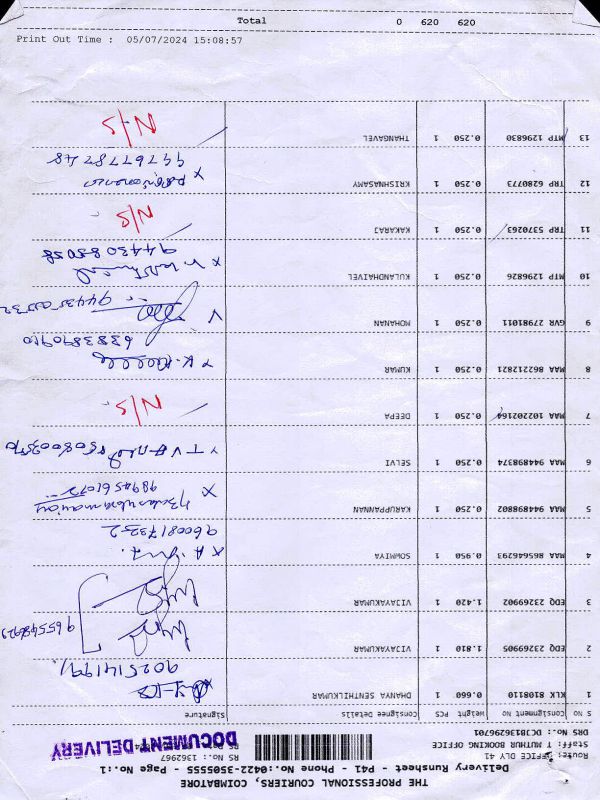 THE PROFESSIONAL COURIERS, COIMBATORE
Delivery Runsheet - P41 - Phone No.:0422-3505555 - Page No.:1
DLY 41
Staff: T MUTHUR BOOKING OFFICE
RS No.: 1362967
DRS No.: DCJB136296701
DOCUMENT DELIVERY
S No Consignment No Weight PCS Consignee Details Signature
1 KLK 8108110 0.660 1 DHANYA SENTHILKUMAR
9025141991
2 EDQ 23269905 1.810 1 VIJAYAKUMAR
3 EDQ 23269902 1.420 1 VIJAYAKUMAR
4 MAA 865646293 0.950 1 SOWMIYA
5 MAA 944898802 0.250 1 KARUPPANNAN
X Balasubramaniam
6 MAA 944898374 0.250 1 SELVI
7 MAA 102202164 0.250 1 DEEPA N/S
8 MAA 862212821 0.250 1 KUMAR
6383890910
9 GVR 27981011 0.250 1 MOHANAN
10 MTP 1296826 0.250 1 KULANDHAIVEL
9443085058
11 TRP 5370263 0.250 1 KAKARAJ N/S
12 TRP 6280773 0.250 1 KRISHNASAMY
9976778748
13 MTP 1296830 0.250 1 THANGAVEL N/S
Print Out Time : 05/07/2024 15:08:57
Total 0 620 620